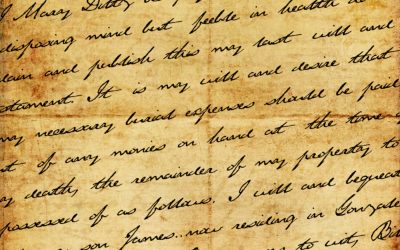 I Mary Dutty being of sound and
disposing mind but feeble in health do
dain and publish this my last will and
stament. It is my will and desire that
my necessary burial expenses should be paid
t of any monies on hand at the time of
my death, the remainder of my property to
possessed of as follows. I will and bequeat
son James..now residing in Gonzale
to wit, B